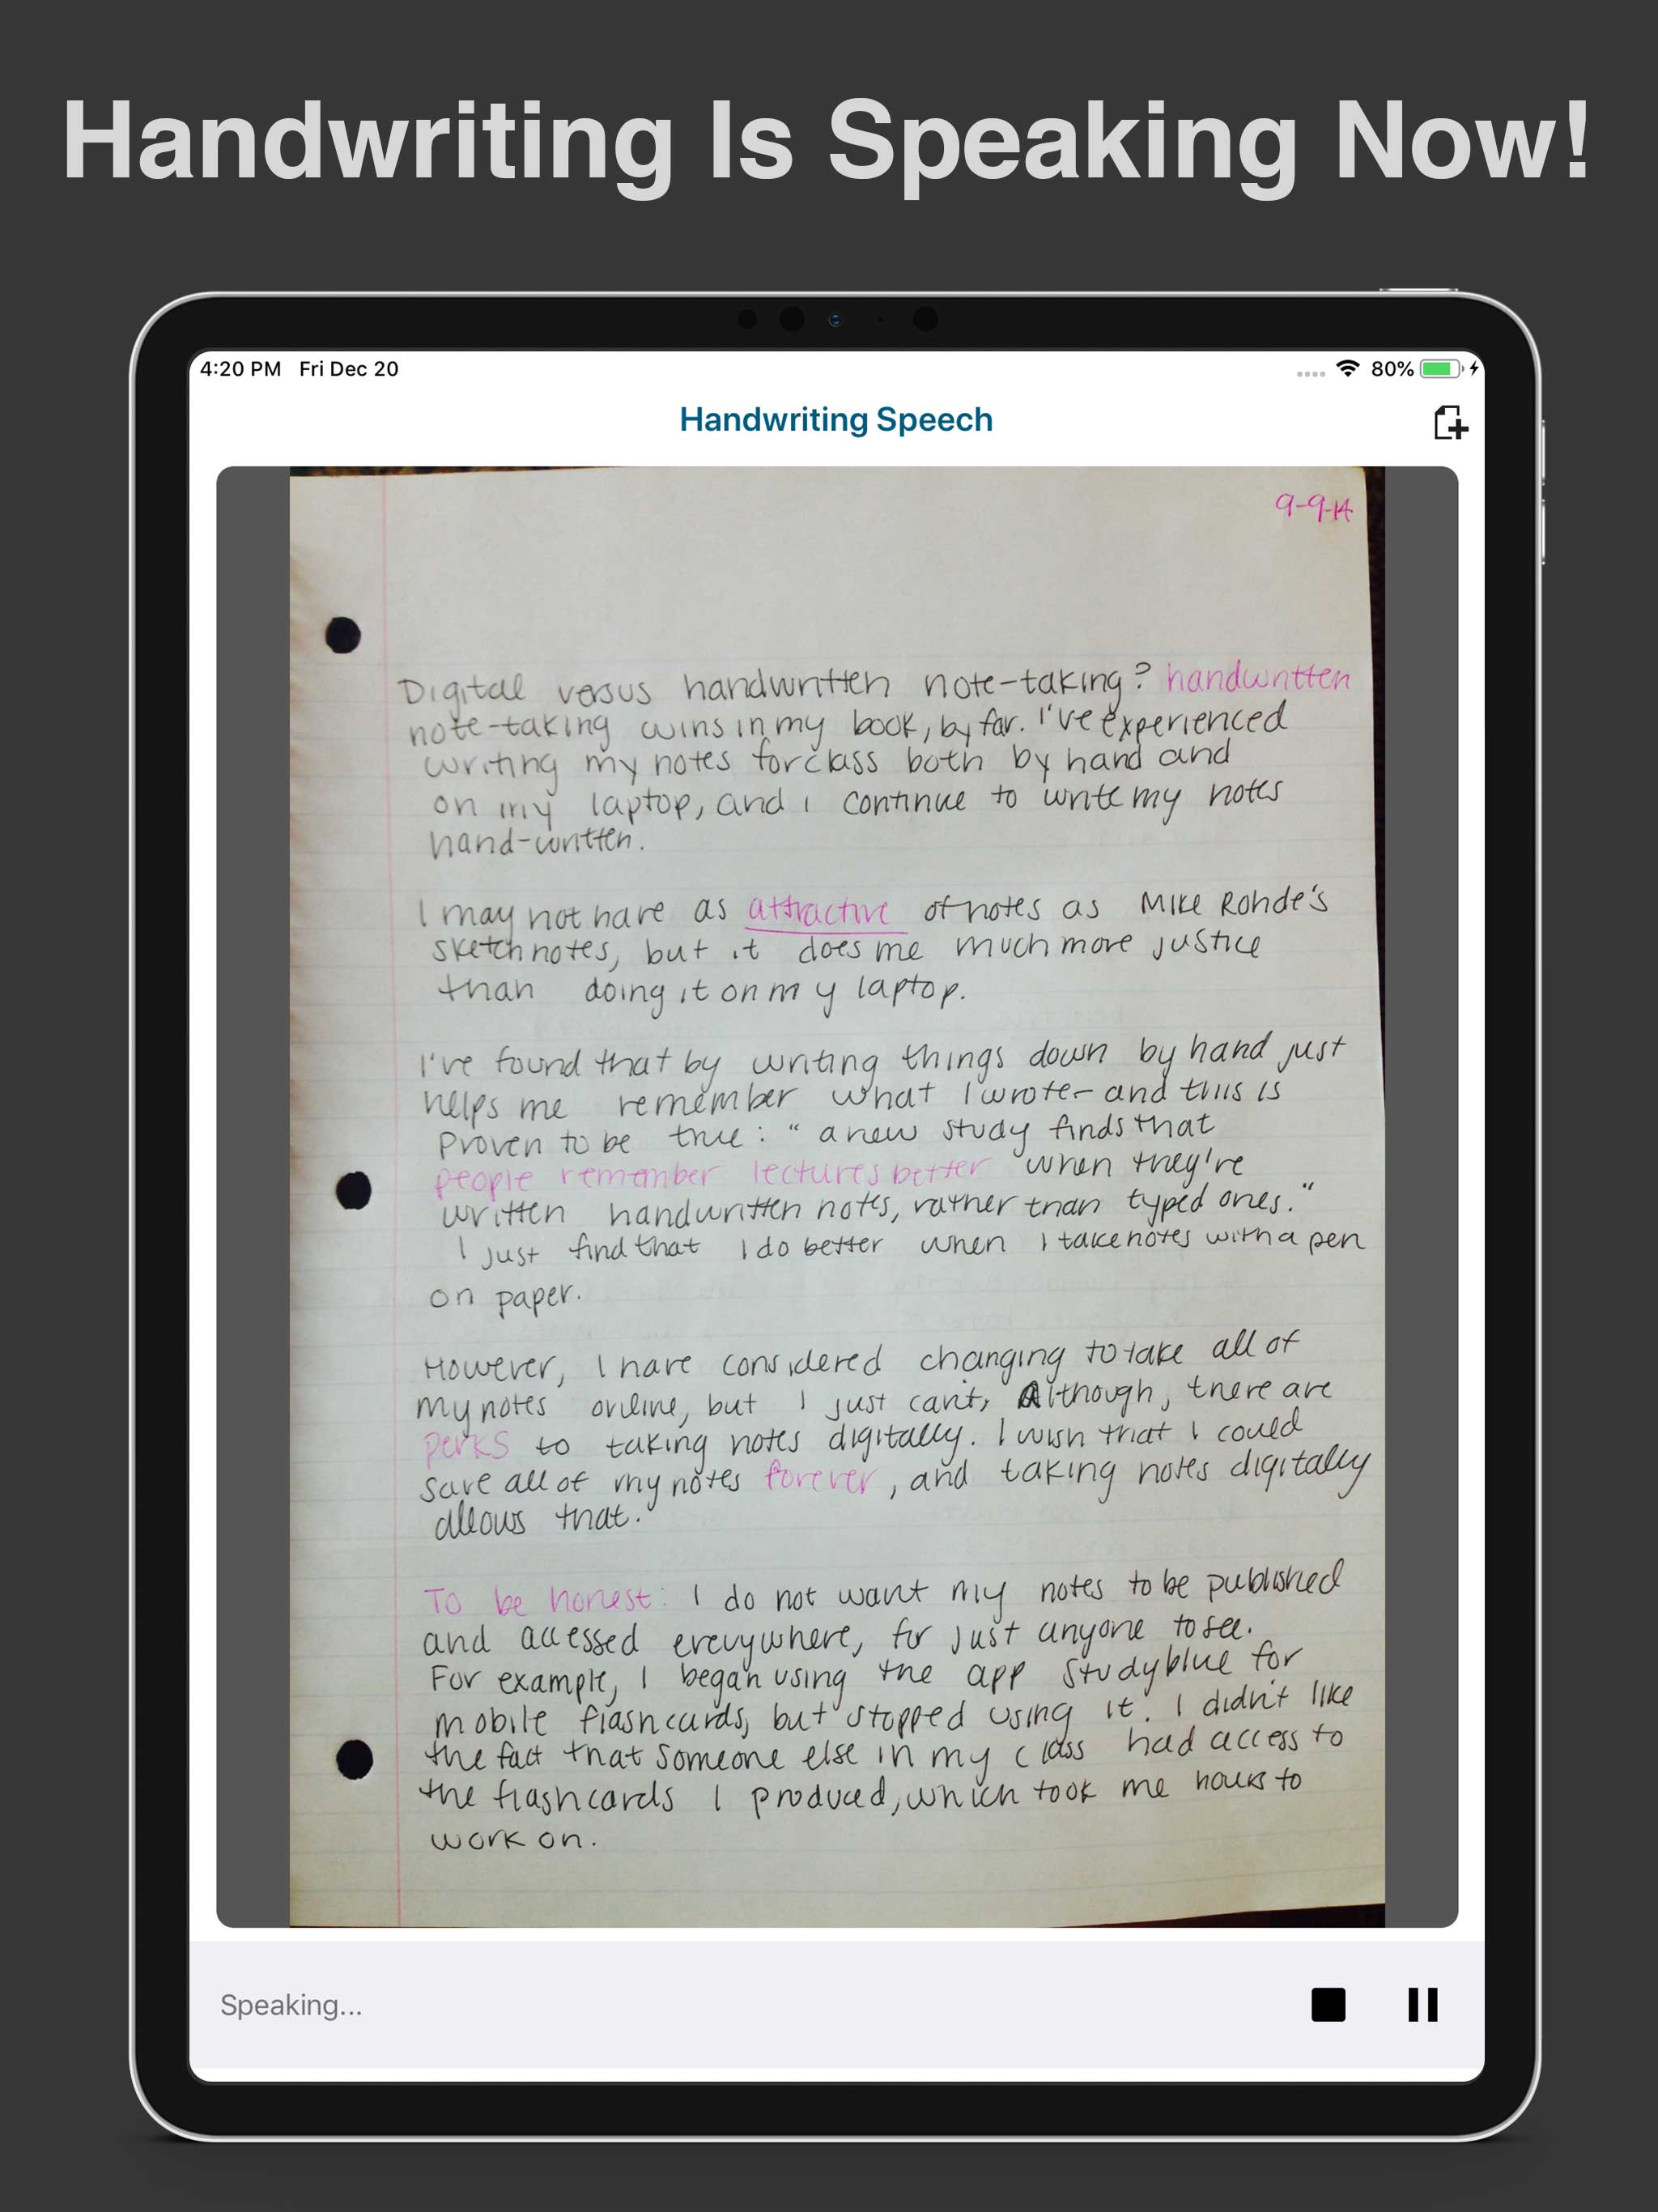 Handwriting Is Speaking Now!
4:20 PM Fri Dec 20
80%
Handwriting Speech
9-9-14
Digital versus handwritten note-taking? handwritten
note-taking wins in my book, by far. I've experienced
writing my notes for class both by hand and
on my laptop, and i continue to write my notes
hand-written.
I may not have as attractive of notes as Mike Rohde's
sketchnotes, but it does me much more justice
than doing it on my laptop.
I've found that by writing things down by hand just
helps me remember what I wrote- and this is
proven to be true: "a new study finds that
people remember lectures better when they're
written handwritten notes, rather than typed ones."
I just find that I do better when I take notes with a pen
on paper.
However, I have considered changing to take all of
my notes online, but I just can't, Although, there are
perks to taking notes digitally. I wish that I could
save all of my notes forever, and taking notes digitally
allows that.
To be honest: I do not want my notes to be published
and accessed everywhere, for just anyone to see.
For example, I began using the app Studyblue for
mobile flashcards, but stopped using it. I didn't like
the fact that someone else in my class had access to
the flashcards I produced, which took me hours to
work on.
Speaking...